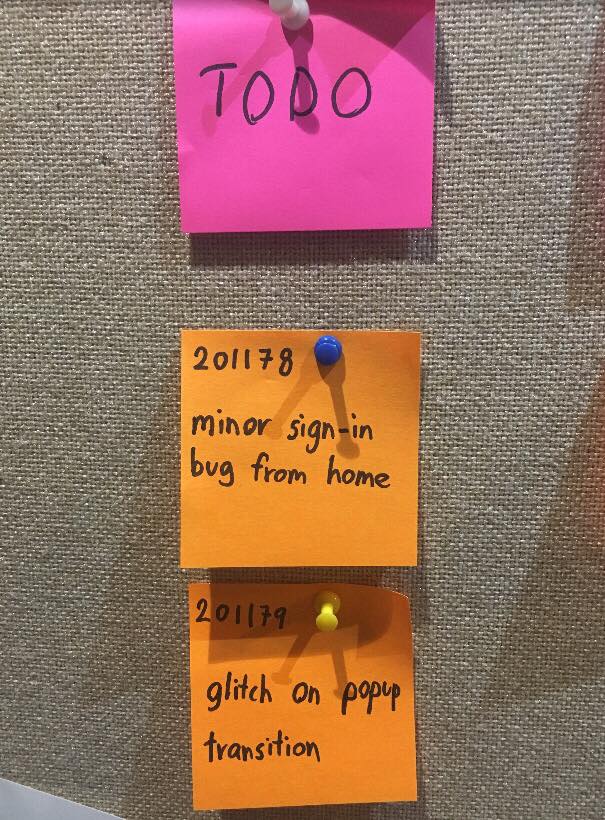 TODO
201178
minor sign-in
bug from home
201179
glitch on popup
transition